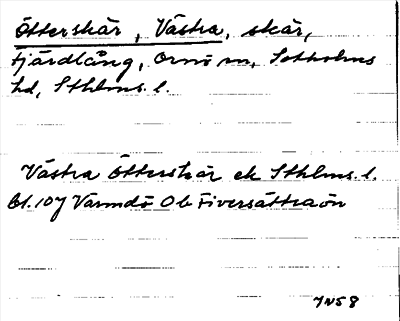 Ötterskär, Västra, skär,
Fjärdlång, Ornö sn, Sotholms
hd, Sthlms. l.
Västra Ötterskär ek Sthlms. l.
Bl. 107 Värmdö Ob Fiversättraön
JNS 8